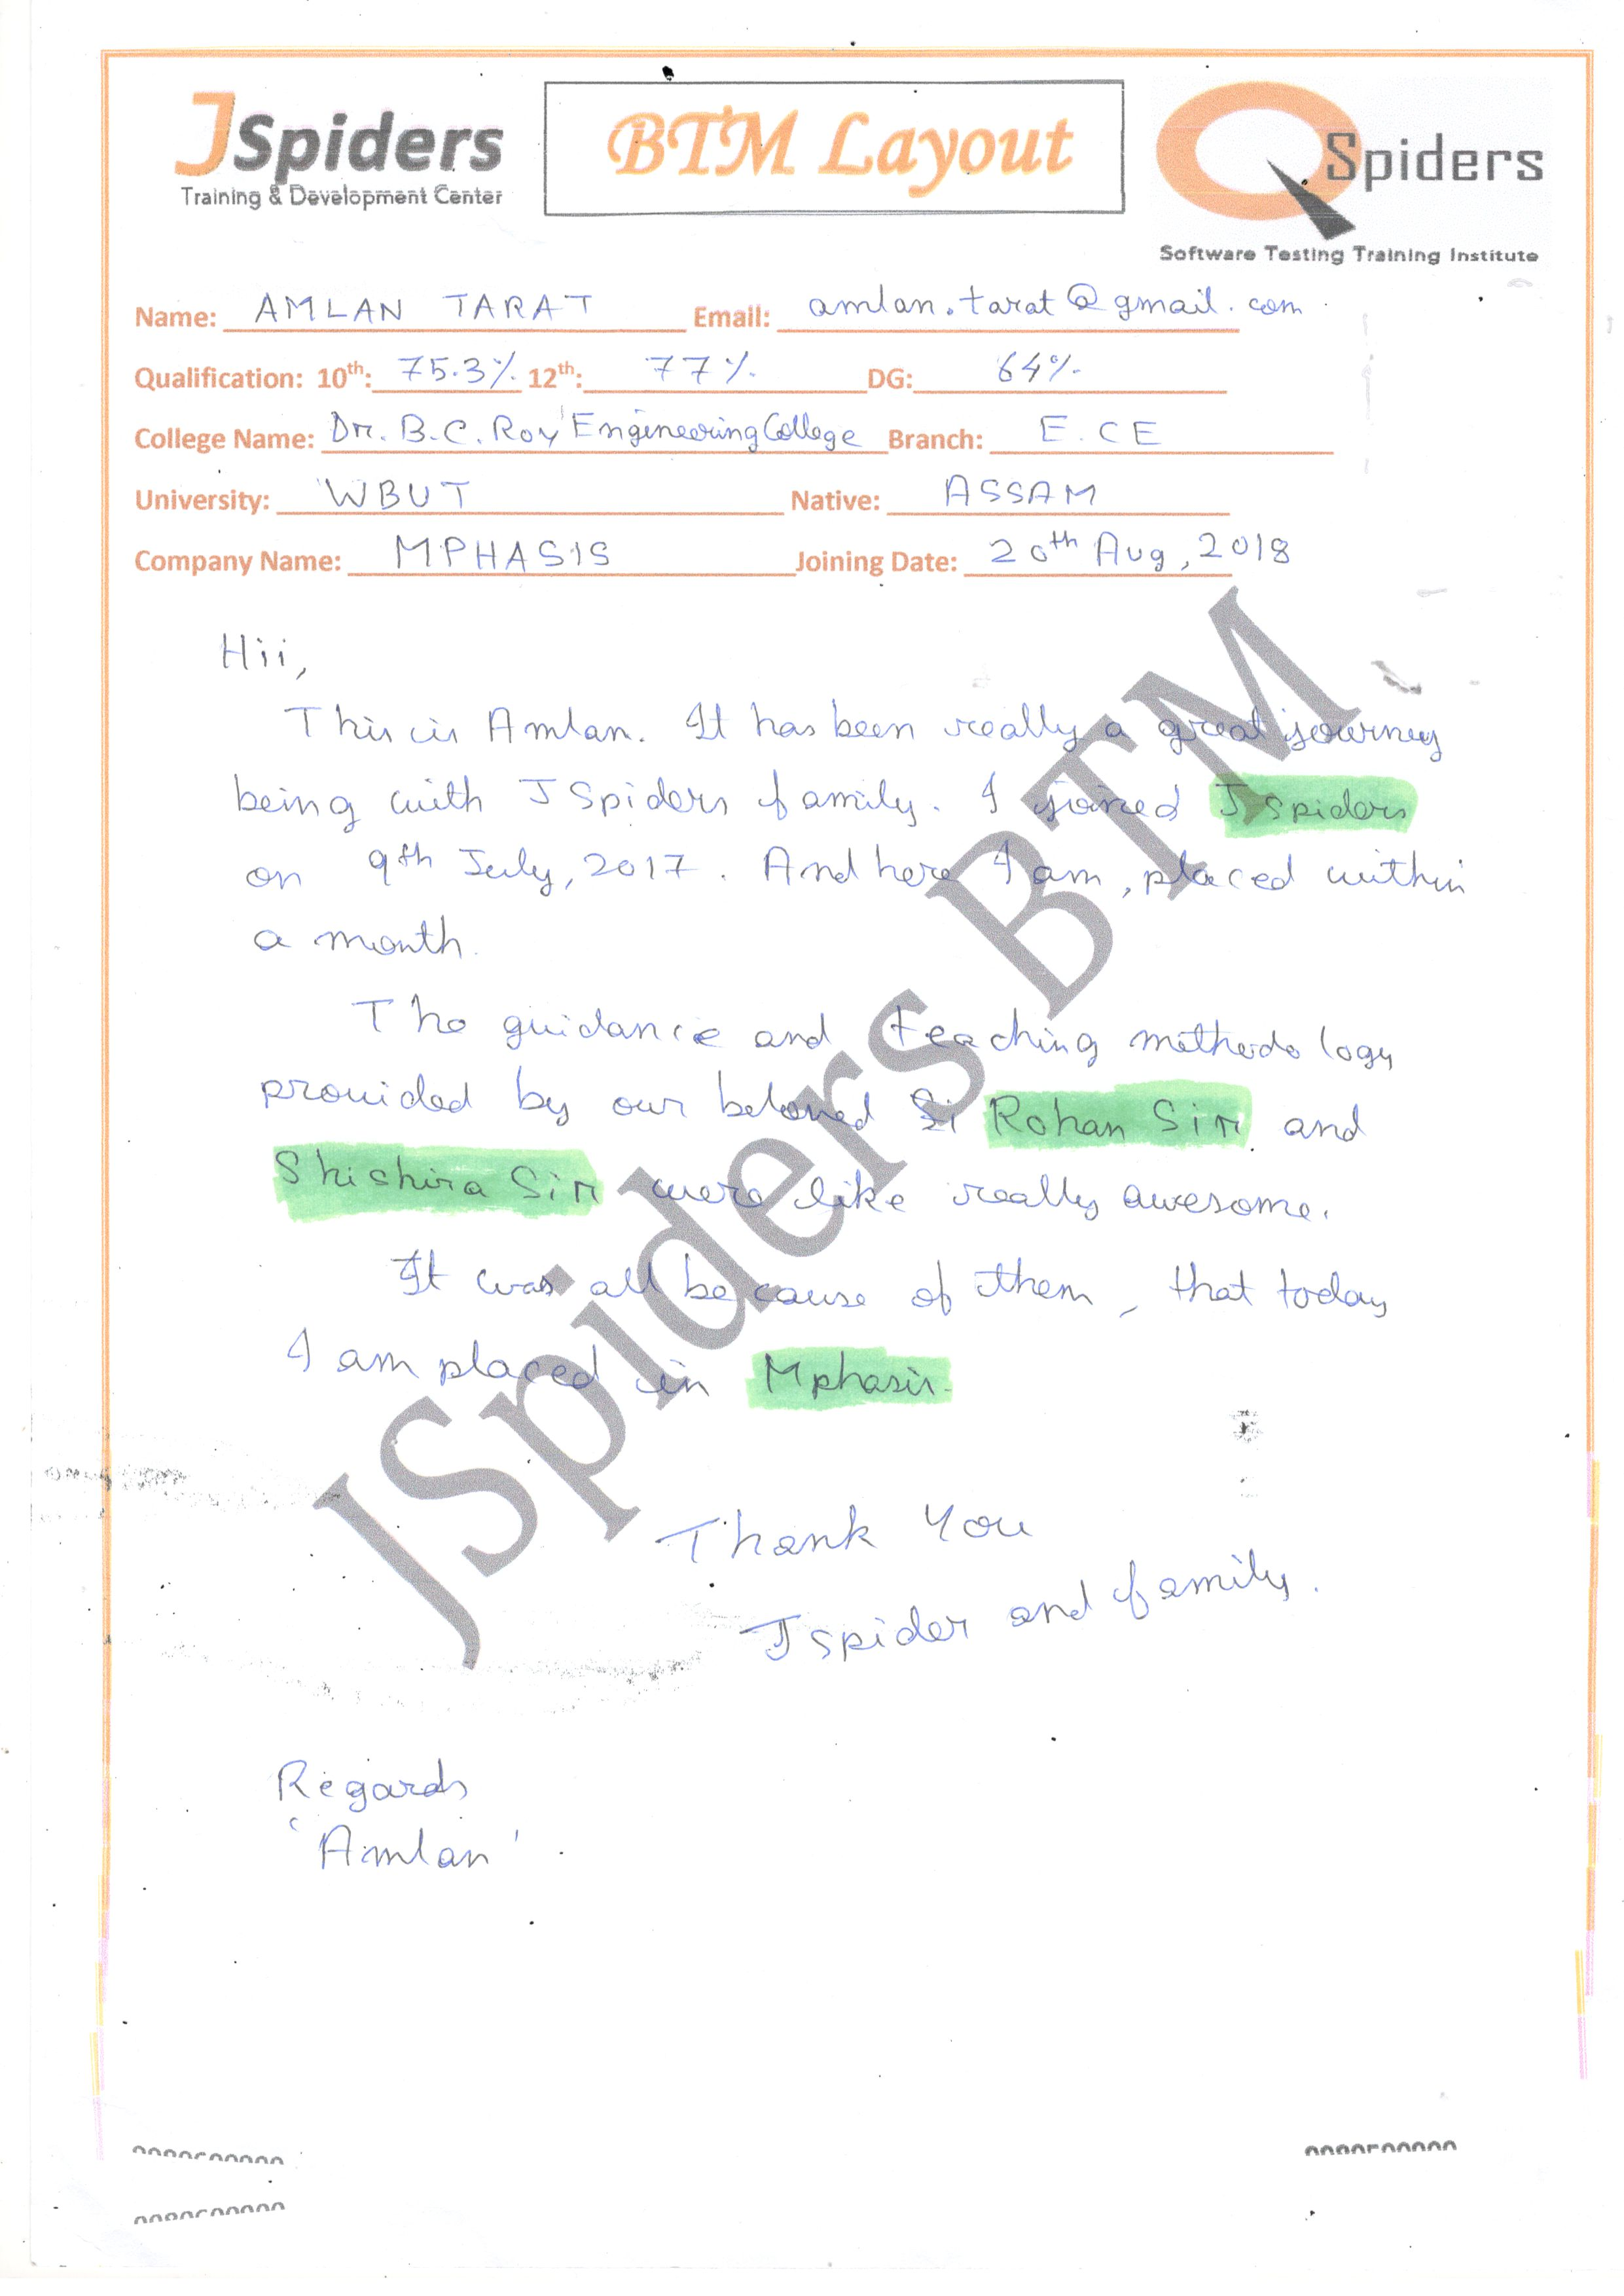 JSpiders
Training & Development Center
BTM Layout
QSpiders
Software Testing Training Institute
Name: AMLAN TARAT Email: amlan.tarat@gmail.com
Qualification: 10th: 75.3% 12th: 77% DG: 64%
College Name: Dr. B.C. Roy Engineering College Branch: E.CE
University: WBUT Native: ASSAM
Company Name: MPHASIS Joining Date: 20th Aug, 2018
Hii,
This is Amlan. It has been really a great journey
being with JSpiders family. I joined Jspiders
on 9th July, 2017. And here I am, placed within
a month.
The guidance and teaching methodology
provided by our beloved Si Rohan Sir and
Shishira Sir were like really awesome.
It was all because of them, that today
I am placed in Mphasis.
JSpiders BTM
Thank You
Jspider and family.
Regards
'Amlan'.